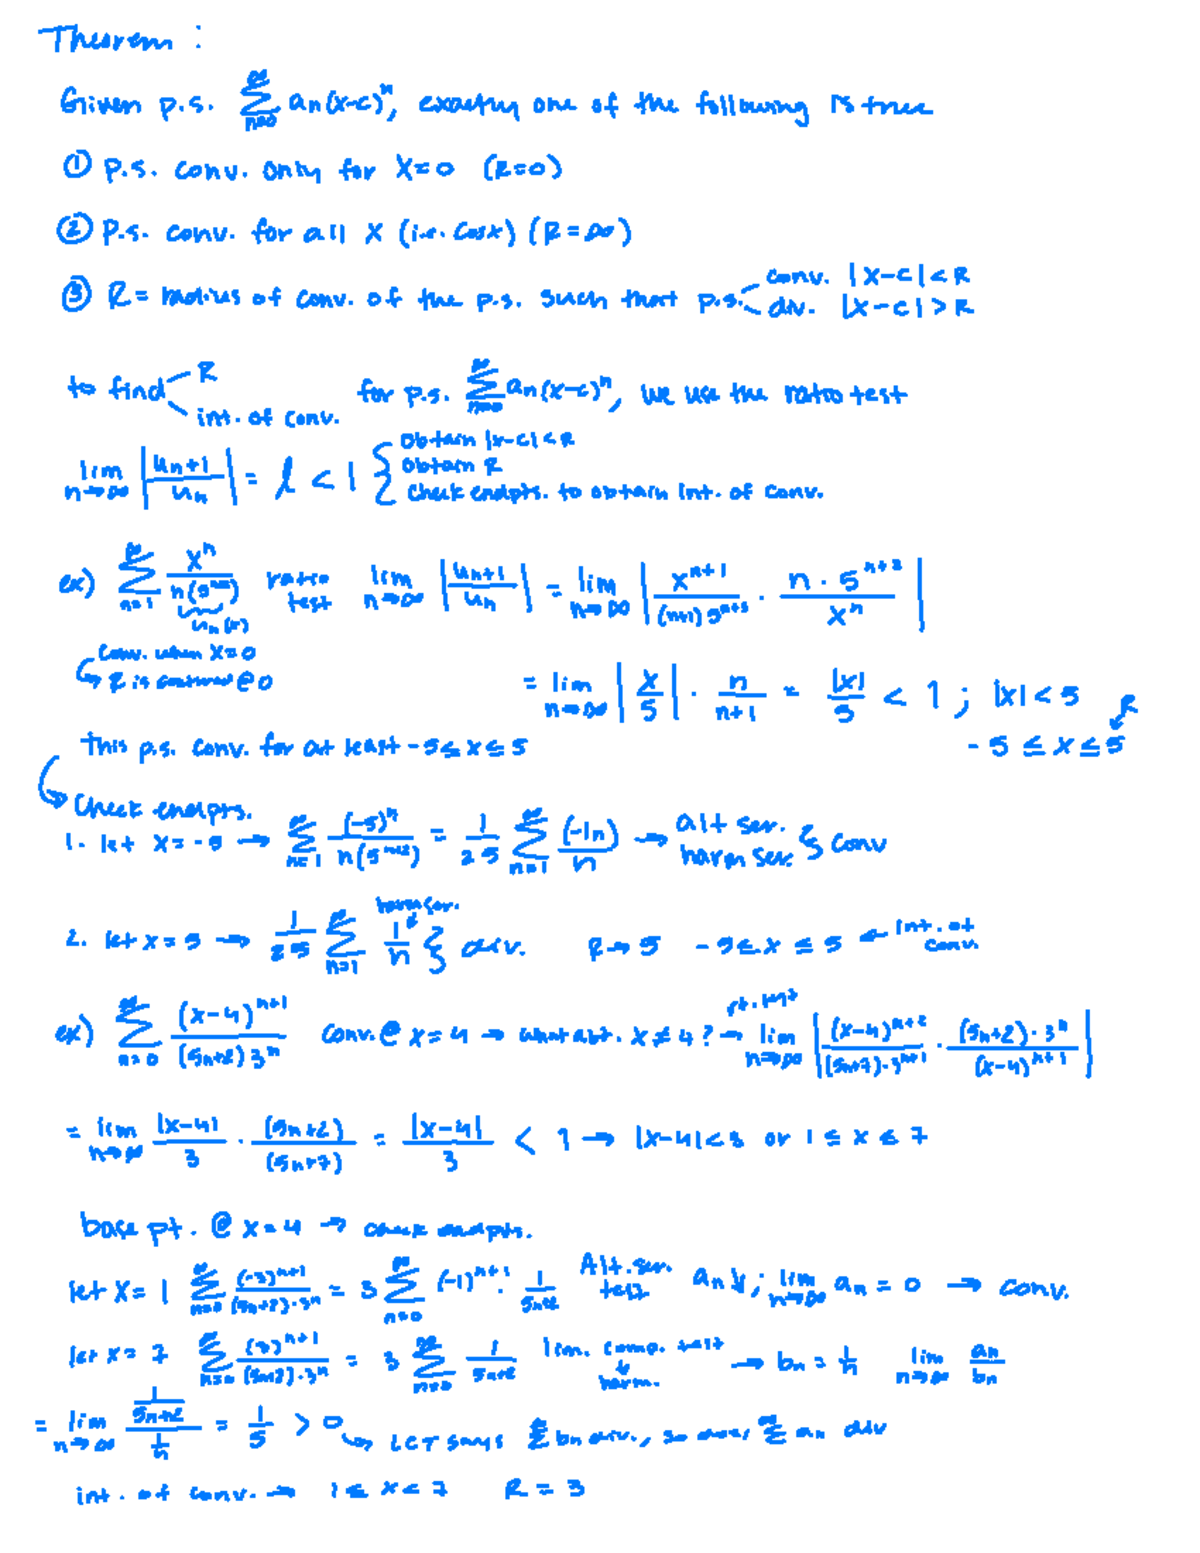 Theorem :
Given p.s. ∞ Σ n=0 an(x-c)^n, exactly one of the following is true
① p.s. conv. only for x=0 (R=0)
② P.s. conv. for all x (i.e. cosx) (R=∞)
③ R= radius of conv. of the p.s. such that p.s. conv. |x-c|<R
div. |x-c|>R
to find R
int. of conv.
for p.s. ∞ Σ n=0 an(x-c)^n, we use the ratio test
lim n→∞ |un+1/un| = l < 1 { obtain |x-c|<R
obtain R
check endpts. to obtain int. of conv.
ex) ∞ Σ n=1 x^n/n(5^n+2) ratio test lim n→∞ |un+1/un| = lim n→∞ |x^n+1/(n+1)5^n+3 · n·5^n+2/x^n|
un(x)
conv. when x=0
↳ R is centered @ 0
= lim n→∞ |x/5| · n/n+1 = |x|/5 < 1 ; |x|<5
R
-5 ≤ x ≤ 5
This p.s. conv. for at least -5≤x≤5
↳ Check endpts.
1. let x=-5 → ∞ Σ n=1 (-5)^n/n(5^n+2) = 1/25 ∞ Σ n=1 (-1n)/n → alt ser. harm ser. } conv
2. let x=5 → 1/25 ∞ Σ n=1 1/n } div. R→5 -5≤x≤5 ← int. of conv.
harm ser.
ex) ∞ Σ n=0 (x-4)^n+1/(5n+2)3^n conv. @ x=4 → what abt. x≠4? → lim n→∞ |(x-4)^n+2/(5n+7)·3^n+1 · (5n+2)·3^n/(x-4)^n+1|
rt. test
= lim n→∞ |x-4|/3 · (5n+2)/(5n+7) = |x-4|/3 < 1 → |x-4|<3 or 1≤x≤7
base pt. @ x=4 → check endpts.
let x=1 ∞ Σ n=0 (-3)^n+1/(5n+2)·3^n = 3 ∞ Σ n=0 (-1)^n+1 · 1/5n+2 Alt. ser. test an↓; lim n→∞ an = 0 → conv.
let x=7 ∞ Σ n=0 (3)^n+1/(5n+2)·3^n = 3 ∞ Σ n=0 1/5n+2 lim. comp. test ↓ harm. → bn = 1/n lim n→∞ an/bn
= lim n→∞ 1/5n+2 / 1/n = 1/5 > 0 ↳ LCT says ∞ Σ bn div., so does ∞ Σ an div
int. of conv. → 1≤x<7 R=3